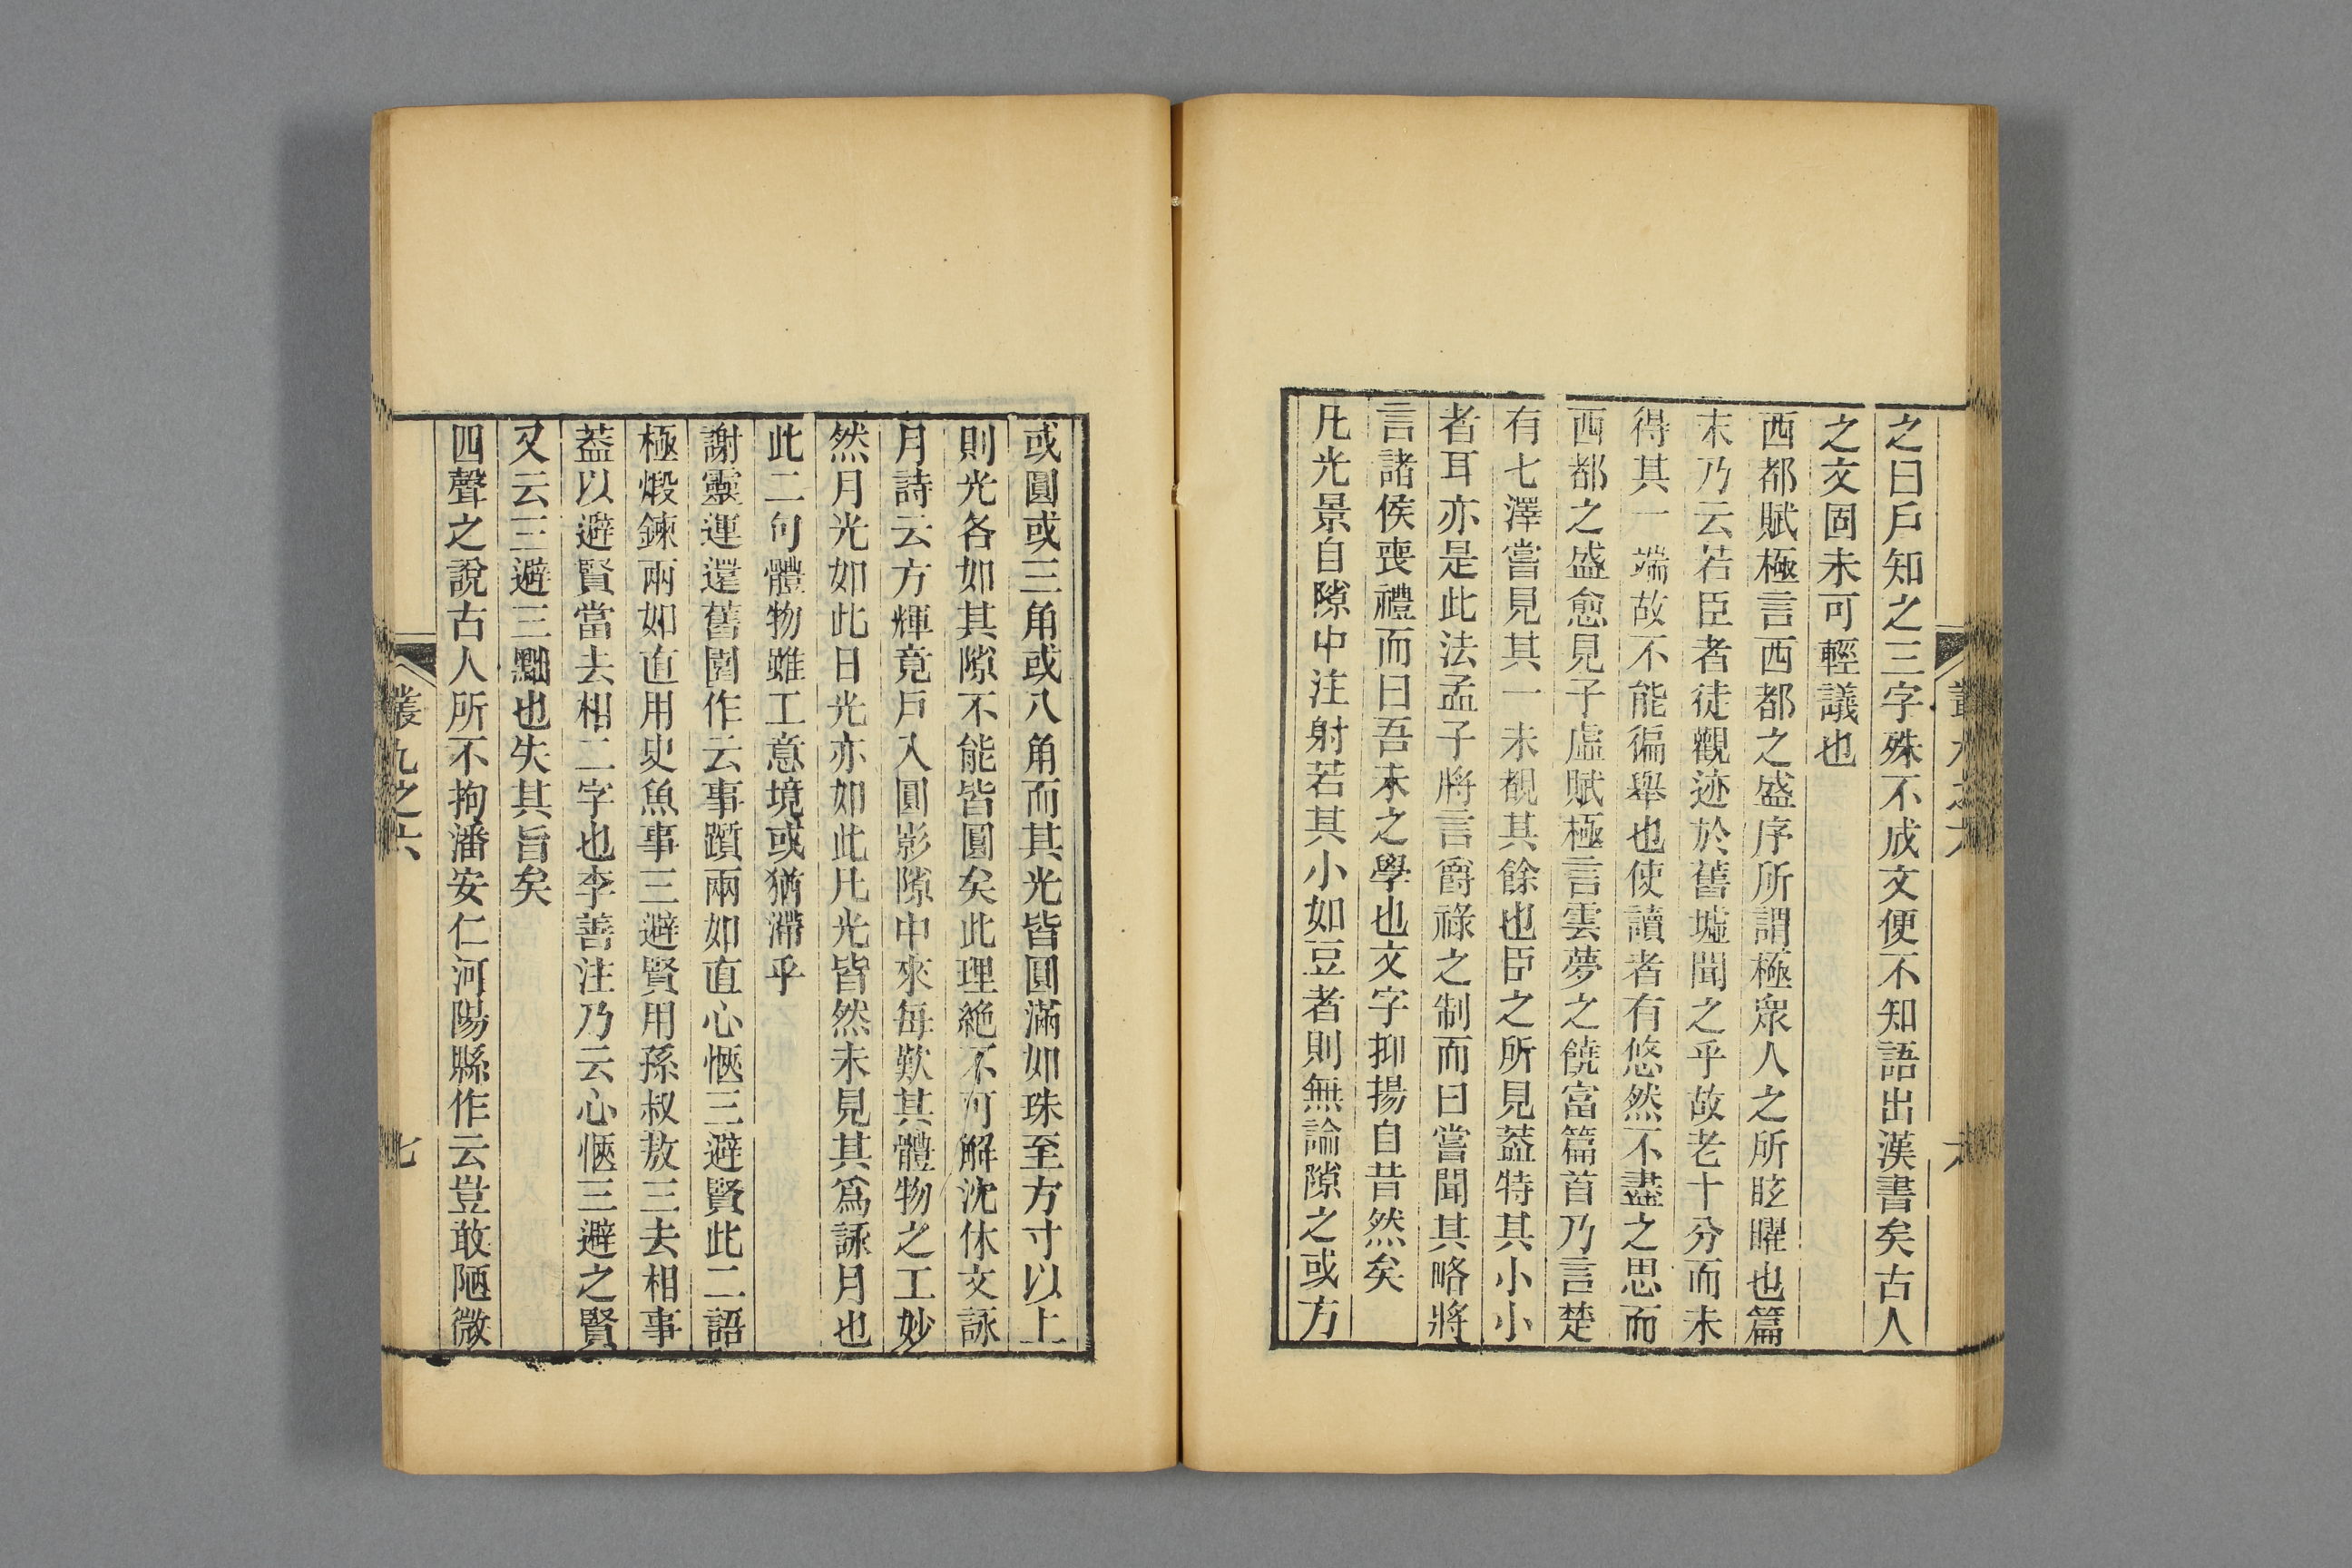 之曰戶知之三字殊不成文便不知語出漢書矣古人
之文固未可輕議也
西都賦極言西都之盛序所謂極衆人之所眩曜也篇
末乃云若臣者徒觀迹於舊墟聞之乎故老十分而未
得其一端故不能徧舉也使讀者有悠然不盡之思而
西都之盛愈見子虛賦極言雲夢之饒富篇首乃言楚
有七澤嘗見其一未覩其餘也臣之所見葢特其小小
者耳亦是此法孟子將言爵祿之制而曰嘗聞其略將
言諸侯喪禮而曰吾未之學也文字抑揚自昔然矣
凡光景自隙中注射若其小如豆者則無論隙之或方
或圓或三角或八角而其光皆圓滿如珠至方寸以上
則光各如其隙不能皆圓矣此理絕不可解沈休文詠
月詩云方輝竟戶入圓影隙中來每歎其體物之工妙
然月光如此日光亦如此凡光皆然未見其爲詠月也
此二句體物雖工意境或猶滯乎
謝靈運還舊園作云事躓兩如直心愜三避賢此二語
極煅鍊兩如直用史魚事三避賢用孫叔敖三去相事
葢以避賢當去相二字也李善注乃云心愜三避之賢
又云三避三黜也失其旨矣
四聲之說古人所不拘潘安仁河陽縣作云豈敢陋微
叢九之六
七